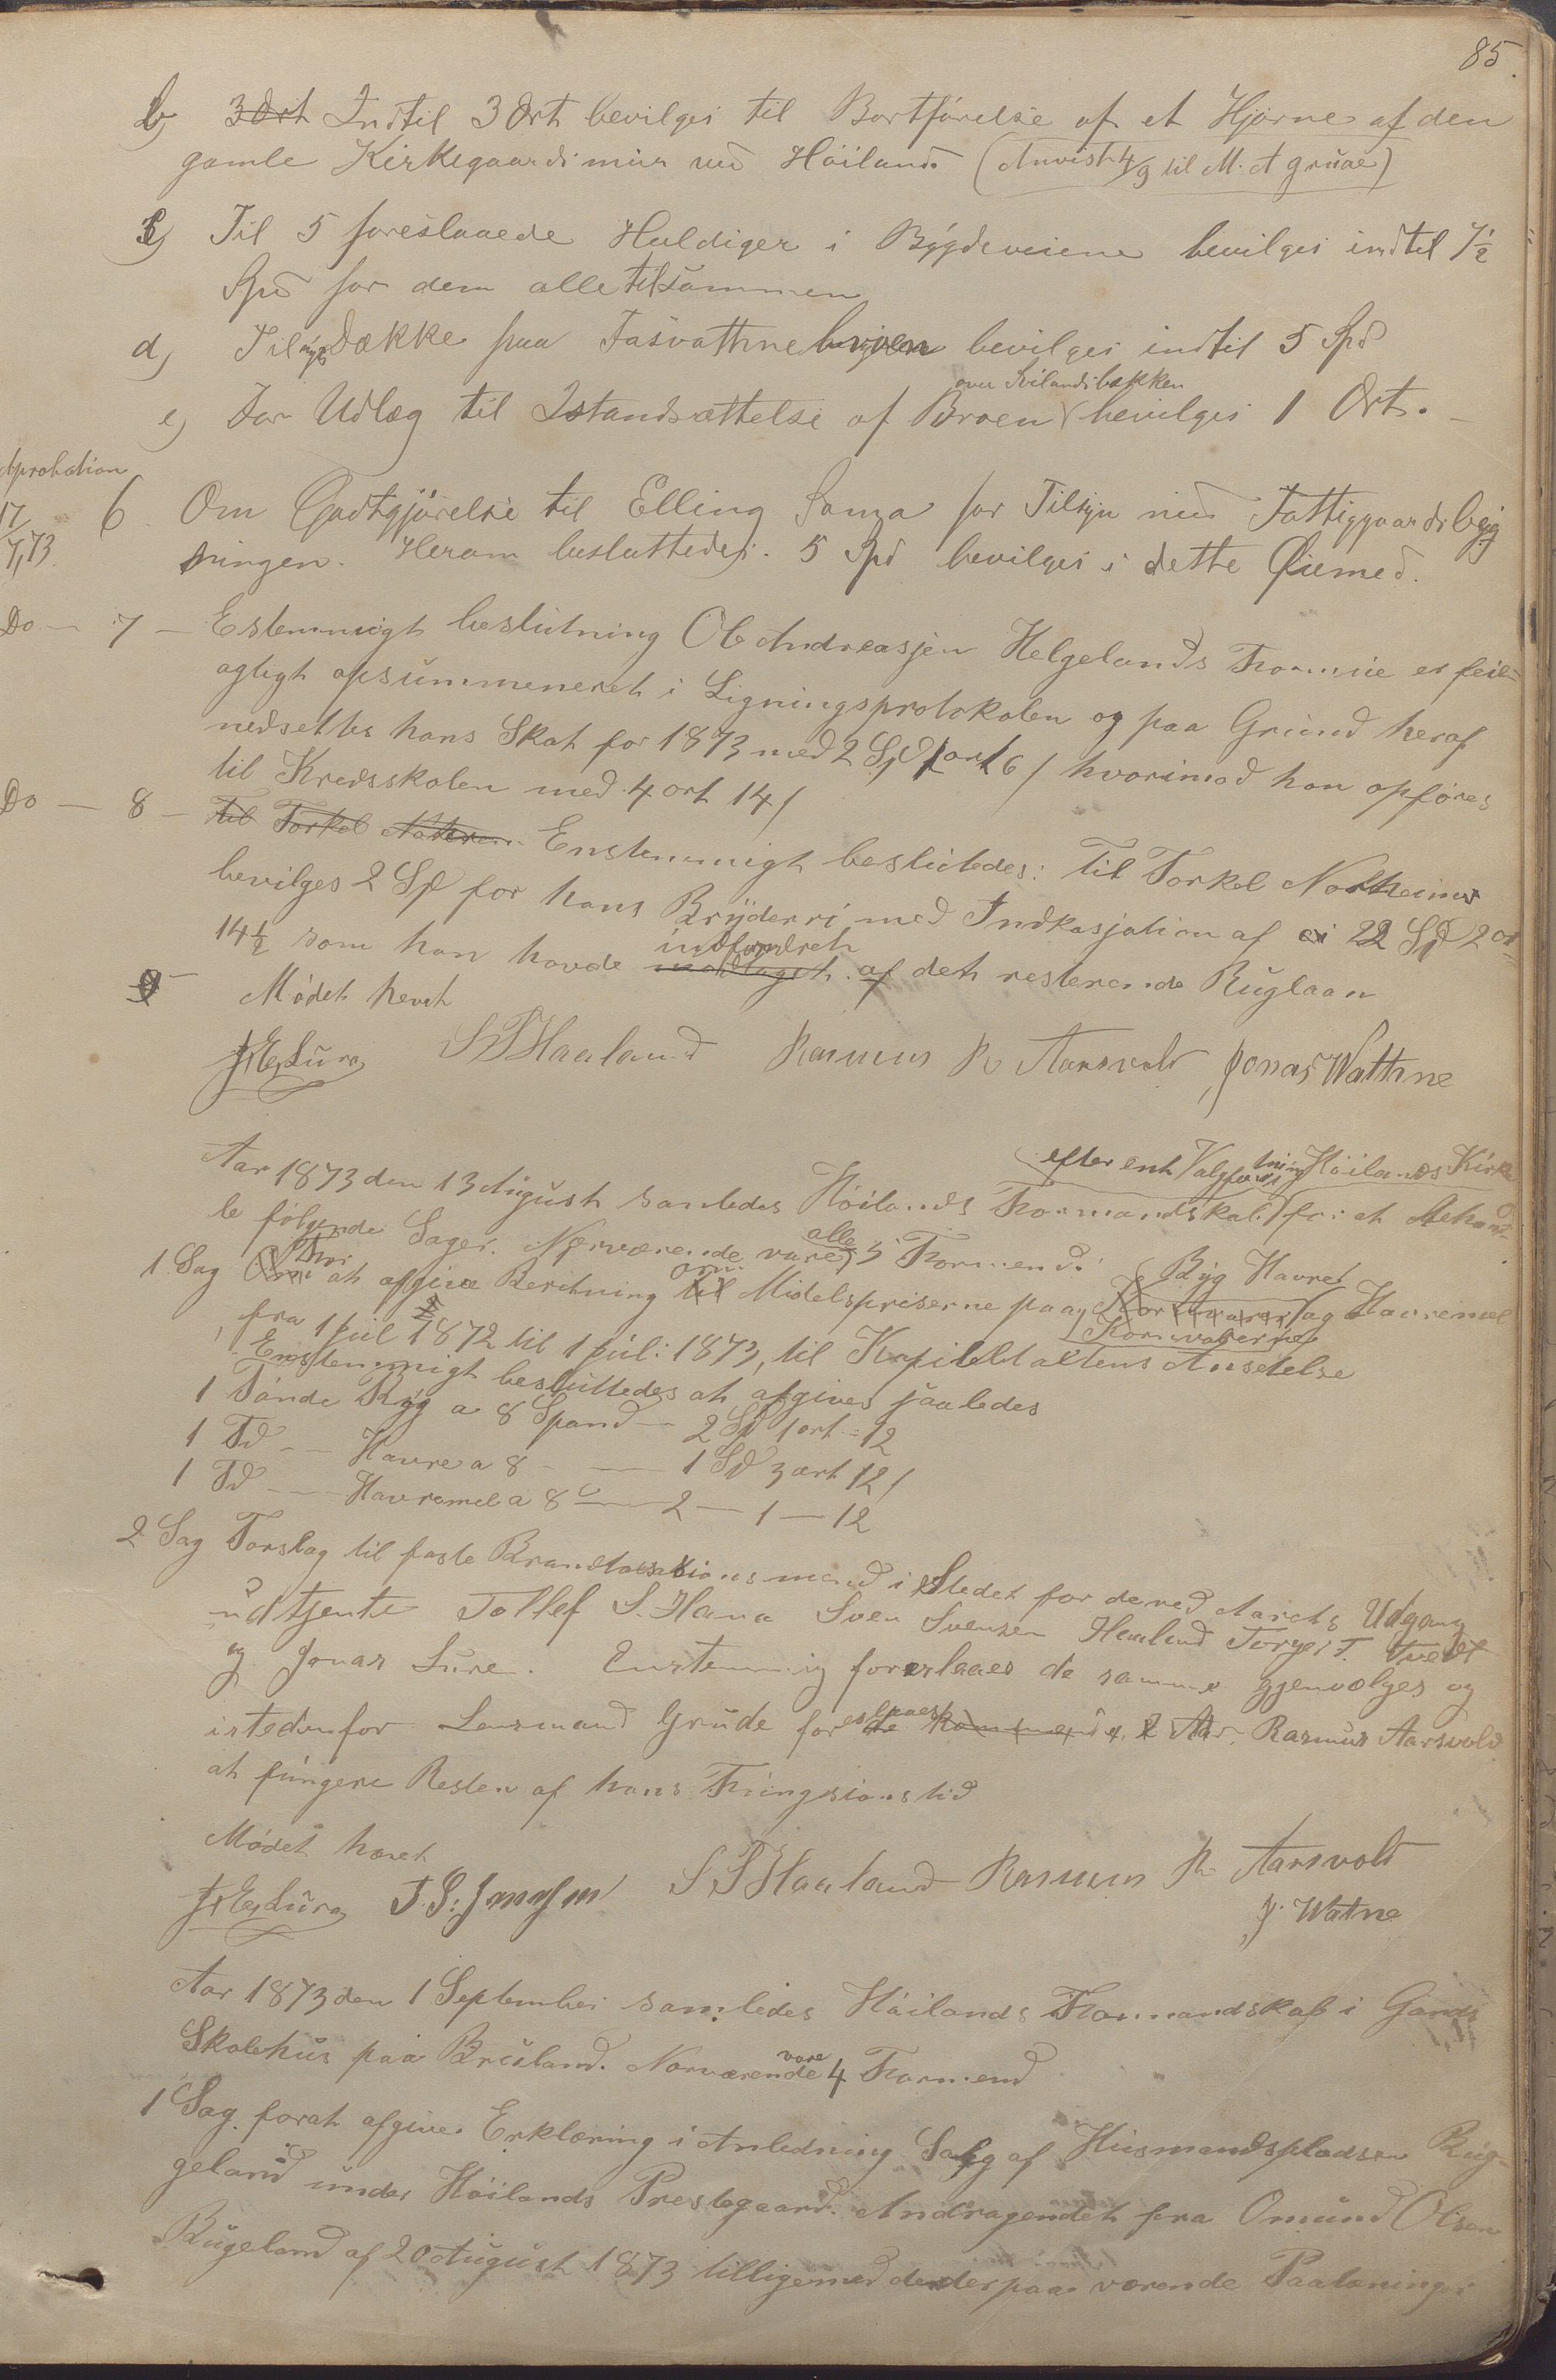 85.
b) 3 Ort Indtil 3 Ort bevilges til Bortførelse af et Hjørne af den
gamle Kirkegaardsmur ved Höiland (Anvist 4/9 til M. A Gruae)
c) Til 5 foreslaaede Huldiger i Bygdeveiene bevilges indtil 7½
Spd for dem alle tilsammen
d) Til nyt Dække paa Fasvathne broen bevilges indtil 5 Spd
over Svilandsbækken
e) For Udlæg til Istandsættelse af Broen bevilges 1 Ort.
Aprobation
17/7, 73.
6. Om Godtgjörelse til Elling Sama for Tilsyn med Fattiggaardsbyg
ningen. Herom besluttedes: 5 Spd bevilges i dette Øiemed.
Do — 7 — Estemmigt beslutning Ole Andreasjen Helgelands Formue er feil=
agtigt opsummeneret i Ligningsprotokolen og paa Grund heraf
nedsettes hans Skat for 1873 med 2 Spd 1 ort 6 / hvorimod han opføres
til Kredsskolen med 4 ort 14 /
Do — 8 — Til Torkel Enstemmigt besluttedes: Til Torkel Northeim
bevilges 2 Spd for hans Bryderri med Indkasjation af 22 Spd 2 or
14½ som han havde indfordret af det resterende Ruglaan
9 Mödet hevet
S T Haaland Rasmus R Aarsvold Jonas Wathne
efter ent Valgforretning i Höilands Kirke
Aar 1873 den 13 August samledes Höilands Formandskab for at Behand
le følgende Sager. Nærværende vare alle 5 Formend.
1 Sag For at afgive Beretning om Midelspriserne paa Byg Havre og Havremel
Kornvarerne
fra 1 Juli 1872 til 1 Juli 1873, til Kapiteltaktens Ansetelse
Enstemmigt besluttedes at afgives saaledes
1 Tönde Byg a 8 Spand — 2 Spd 1 ort = 12
1 Td — Havre a 8 — 1 Spd 3 ort 12 /
1 Td — Havremel a 8 — 2 — 1 — 12
2 Sag Forslag til faste Brandtaxasionsmend i Stedet for de ved Aarets Udgang
udtjente Tollef S. Hana Sven Svensen Haaland Torger T. Tvedt
og Jonas Lure. Enstemmig foreslaaes de samme gjenvælges og
istedenfor Lensmand Grude foreslaaes Rasmus Aarsvold
at fungere Resten af hans Fungsionstid
Mödet hævet
S T Haaland Rasmus R. Aarsvold
J. Watne
Aar 1873 den 1 September samledes Höilands Formandskab i Gands
Skolehus paa Brusland. Nærværende vare 4 Formend
1 Sag. forat afgive Erklæring i Anledning Salg af Husmandspladsen Rug=
geland under Höilands Prestegaard. Andragendet fra Omund Olsen
Rugeland af 20 August 1873 tilligemed de derpaa værende Paateninger